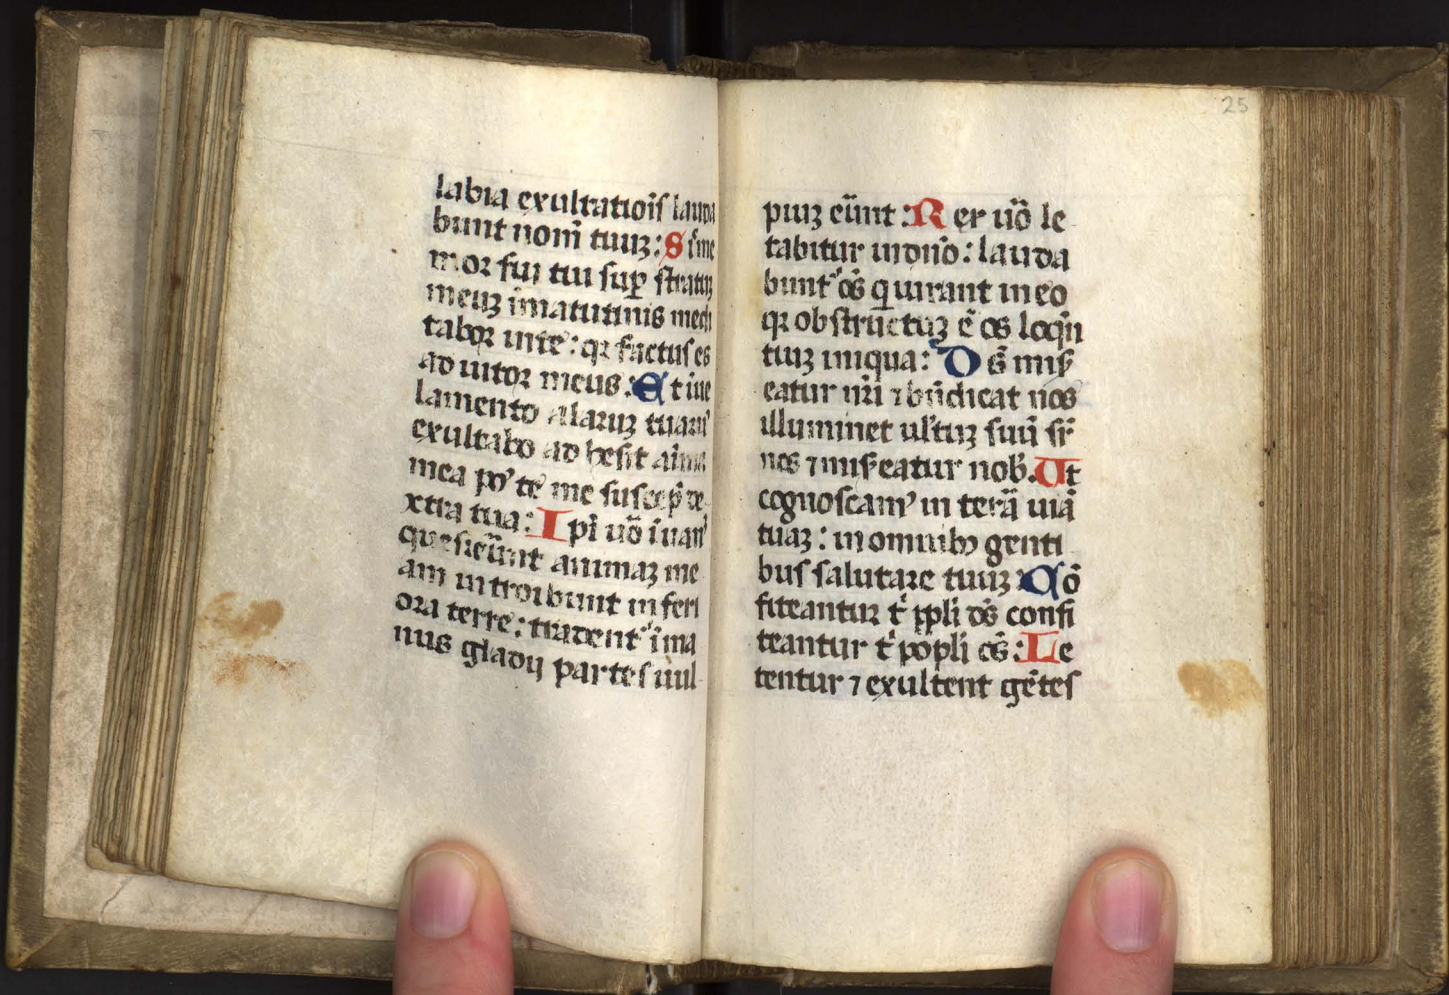 labia exultatioīs lauda
bunt nom̄ tuuꝫ: Si me
moꝛ fui tui suꝑ stratuꝫ
meuꝫ īmatutinis medi
taboꝛ inte: qꝛ factus es
adiutoꝛ meus: Et iue
lamento alaruꝫ tuaruꝫ
exultabo adhesit aīma
mea po' te me suscep̄ de
xtra tua: Ipi uō iuan'
quesieūnt animaꝫ me
am introibunt inferi
oꝛa terre: tradent' īma
nus gladij partes uul
25
piuꝫ eūnt: Rex uō le
tabitur indn̄o: lauda
bunt' oēs qui iurant ineo
qꝛ obstructuꝫ ē os loqn̄
tiuꝫ iniqua: Ds̄ mis̄
eatur nr̄i ⁊ bn̄dicat nos
illuminet ul'tuꝫ suū sr̄
nos ⁊ mis̄eatur nob̄. Ut
cognoscam' in terā uiā
tuaꝫ: in omnibꝫ genti
bus salutaꝛe tuuꝫ Cō
fiteantuꝛ t' ppl'i ds̄ confi
teantur t' popl'i oēs: Le
tentur ⁊ exultent gētes